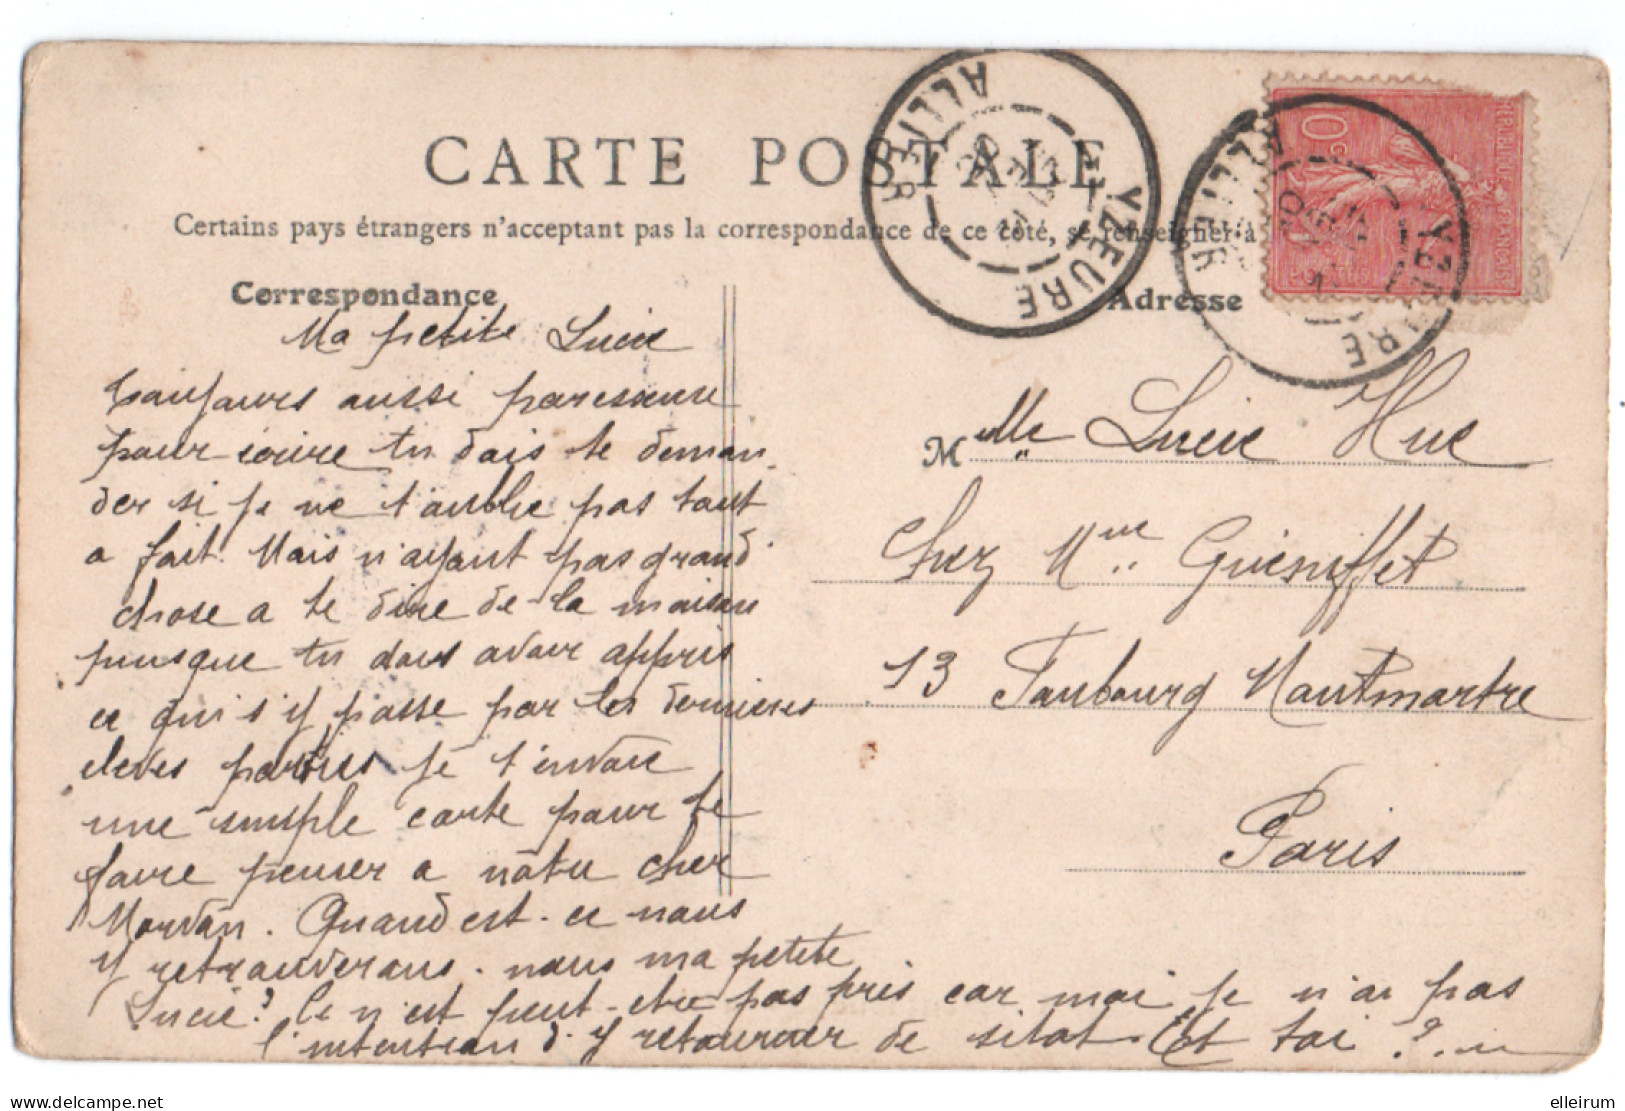 CARTE POSTALE
Certains pays étrangers n'acceptent pas la correspondance de ce côté, se renseigner à
Correspondance
Adresse
YZEURE
ALLIER
YZEURE
ALLIER
Ma petite Lucie
Toujours aussi paresseuse
pour écrire tu dois te deman-
der si je ne t'oublie pas tout
a fait. Mais n'ayant pas grand
chose a te dire de la maison
puisque tu dois avoir appris
ce qui s'y passe par les dernieres
eleves parties je t'envoie
une simple carte pour te
faire penser a notre cher
Morvan. Quand est-ce nous
y retrouverons-nous ma petite
Lucie? Ce n'est peut-etre pas près car moi je n'ai pas
l'intention d'y retourner de sitot. Et toi?
Mlle Lucie Huc
Chez Mme Guéniffet
13 Faubourg Montmartre
Paris
delcampe.net
elleirum